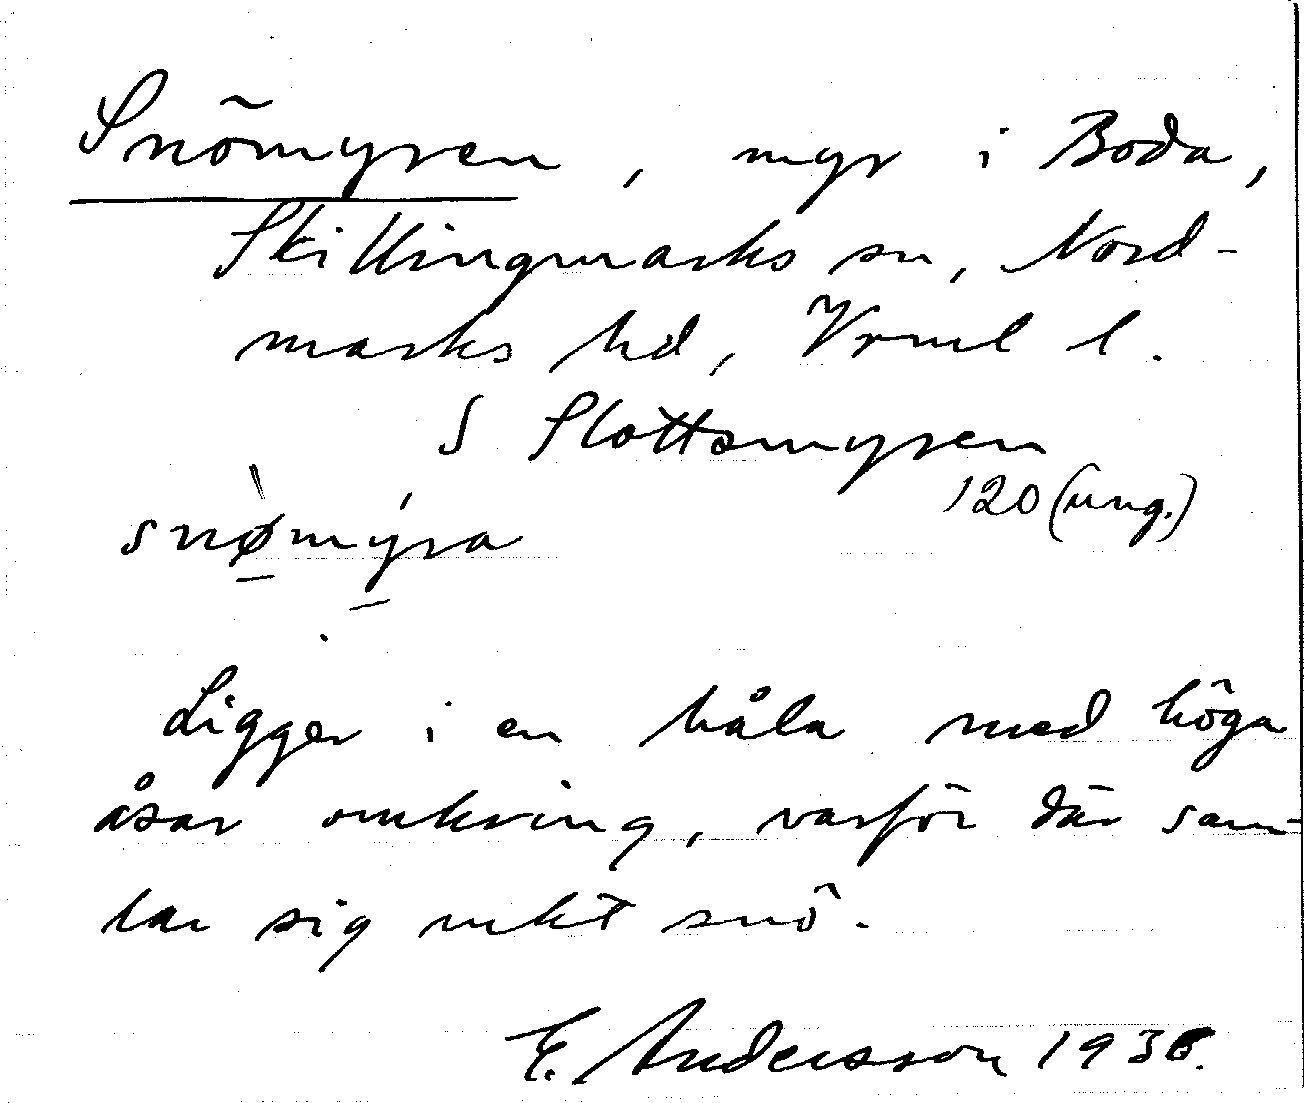 Snömyren, myr i Boda,
Skillingmarks sn, Nord-
marks hd, Vrml l.
S Slottsmyren
120 (ung.)
snø̀mýra
Ligger i en håla med höga
åsar omkring, varför där sam-
lar sig mkt snö.
E. Andersson 1938.